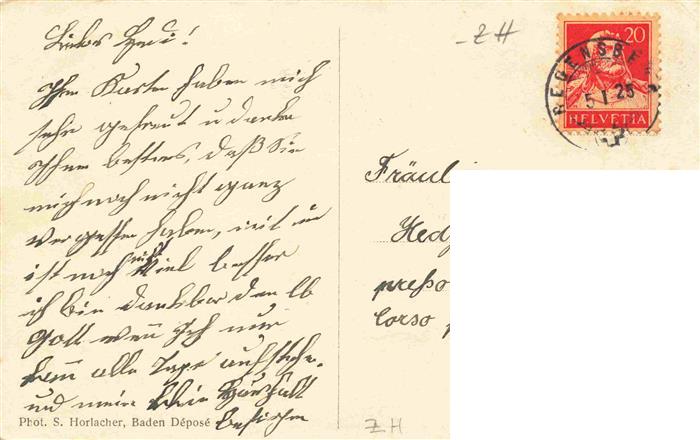 Liebes Hedi!
Ihre Karten haben mich
sehr gefreut u danke
Ihnen bestens, daß Sie
mich noch nicht ganz
vergessen haben, mit
ist noch nicht viel besser
ich bin dankbar den lb
Gott wenn ich nur
kann alle Tage aufstehen.
und mein klein
besorgen
Phot. S. Horlacher, Baden Déposé
- ZH
20
HELVETIA
REGENSBE
5 I 25
Fräuli
Hed
presso
Corso p
ZH